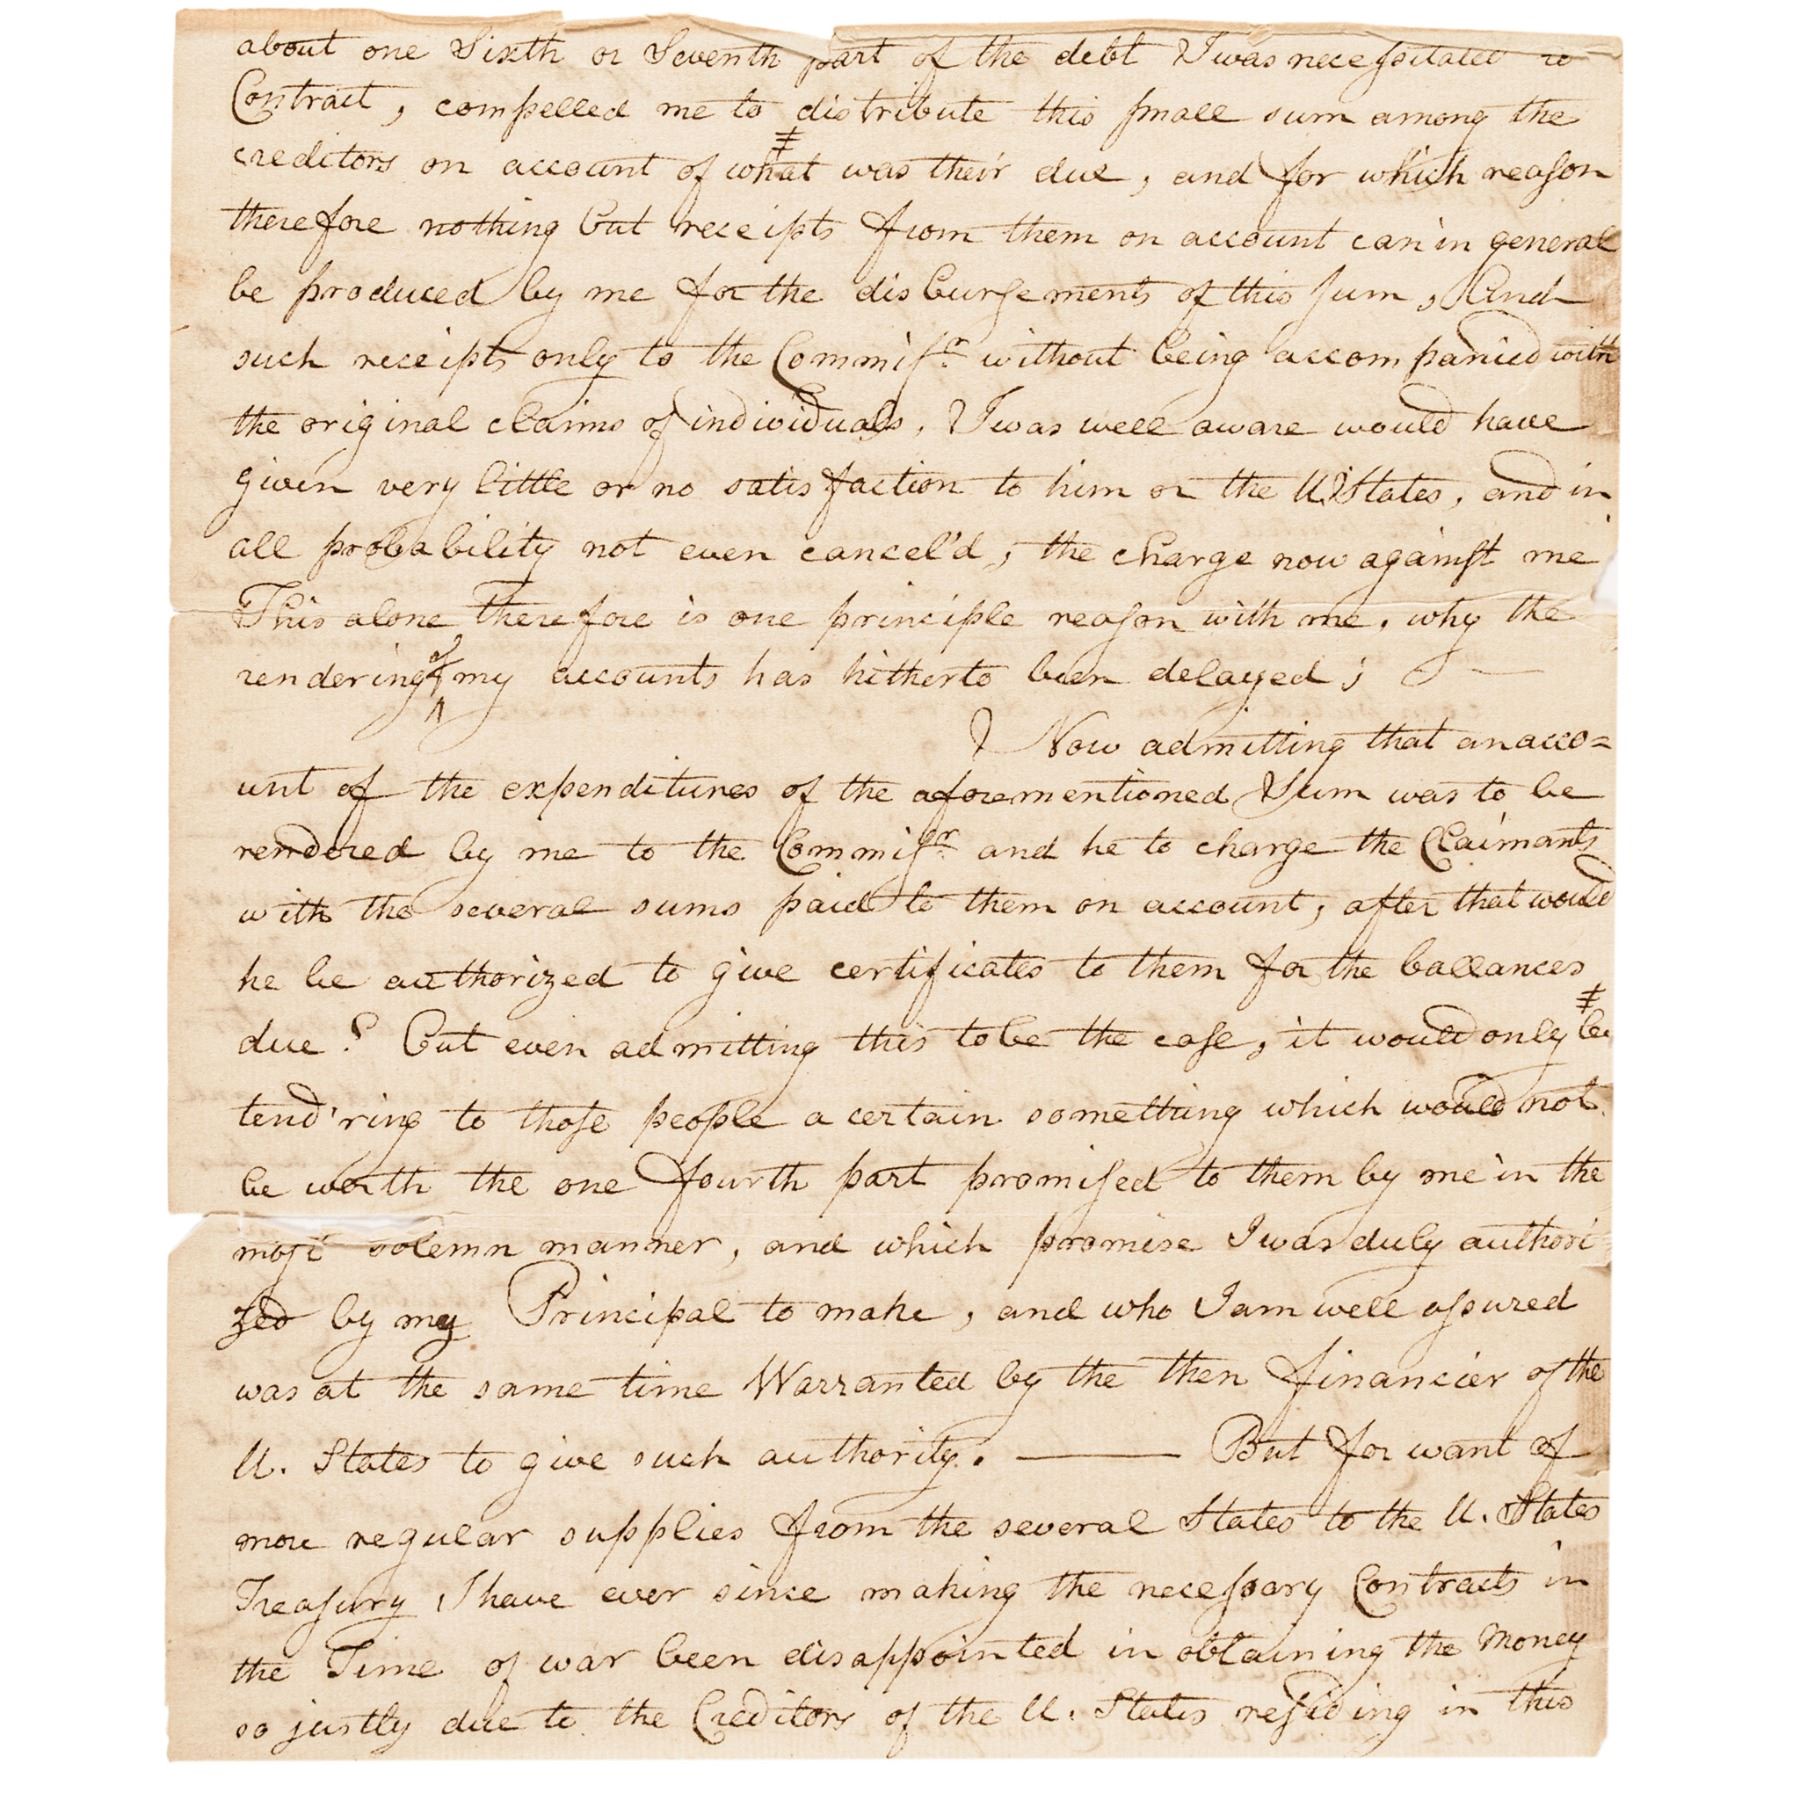 about one Sixth or Seventh part of the debt I was necessitated to
Contract, compelled me to distribute this small sum among the
creditors on account of what was their due, and for which reason
therefore nothing but receipts from them on account can in general
be produced by me for the disbursements of this sum, And
such receipts only to the Commisr. without being accompanied with
the original claims of individuals, I was well aware would have
given very little or no satisfaction to him or the U. States, and in
all probability not even cancel'd, the charge now against me
This alone therefore is one principle reason with me, why the
rendering of my accounts has hitherto been delayed;
Now admitting that an acco=
unt of the expenditures of the aforementioned Sum was to be
rendered by me to the Commisr. and he to charge the Claimants
with the several sums paid to them on account, after that would
he be authorized to give certificates to them for the ballances
due? But even admitting this to be the case, it would only be
tend'ring to those people a certain something which would not
be worth the one fourth part promised to them by me in the
most solemn manner, and which promise I was duly authori=
zed by my Principal to make, and who I am well assured
was at the same time Warranted by the then financier of the
U. States to give such authority. — But for want of
more regular supplies from the several States to the U. States
Treasury I have ever since making the necessary Contracts in
the Time of war been disappointed in obtaining the money
so justly due to the Creditors of the U. States residing in this